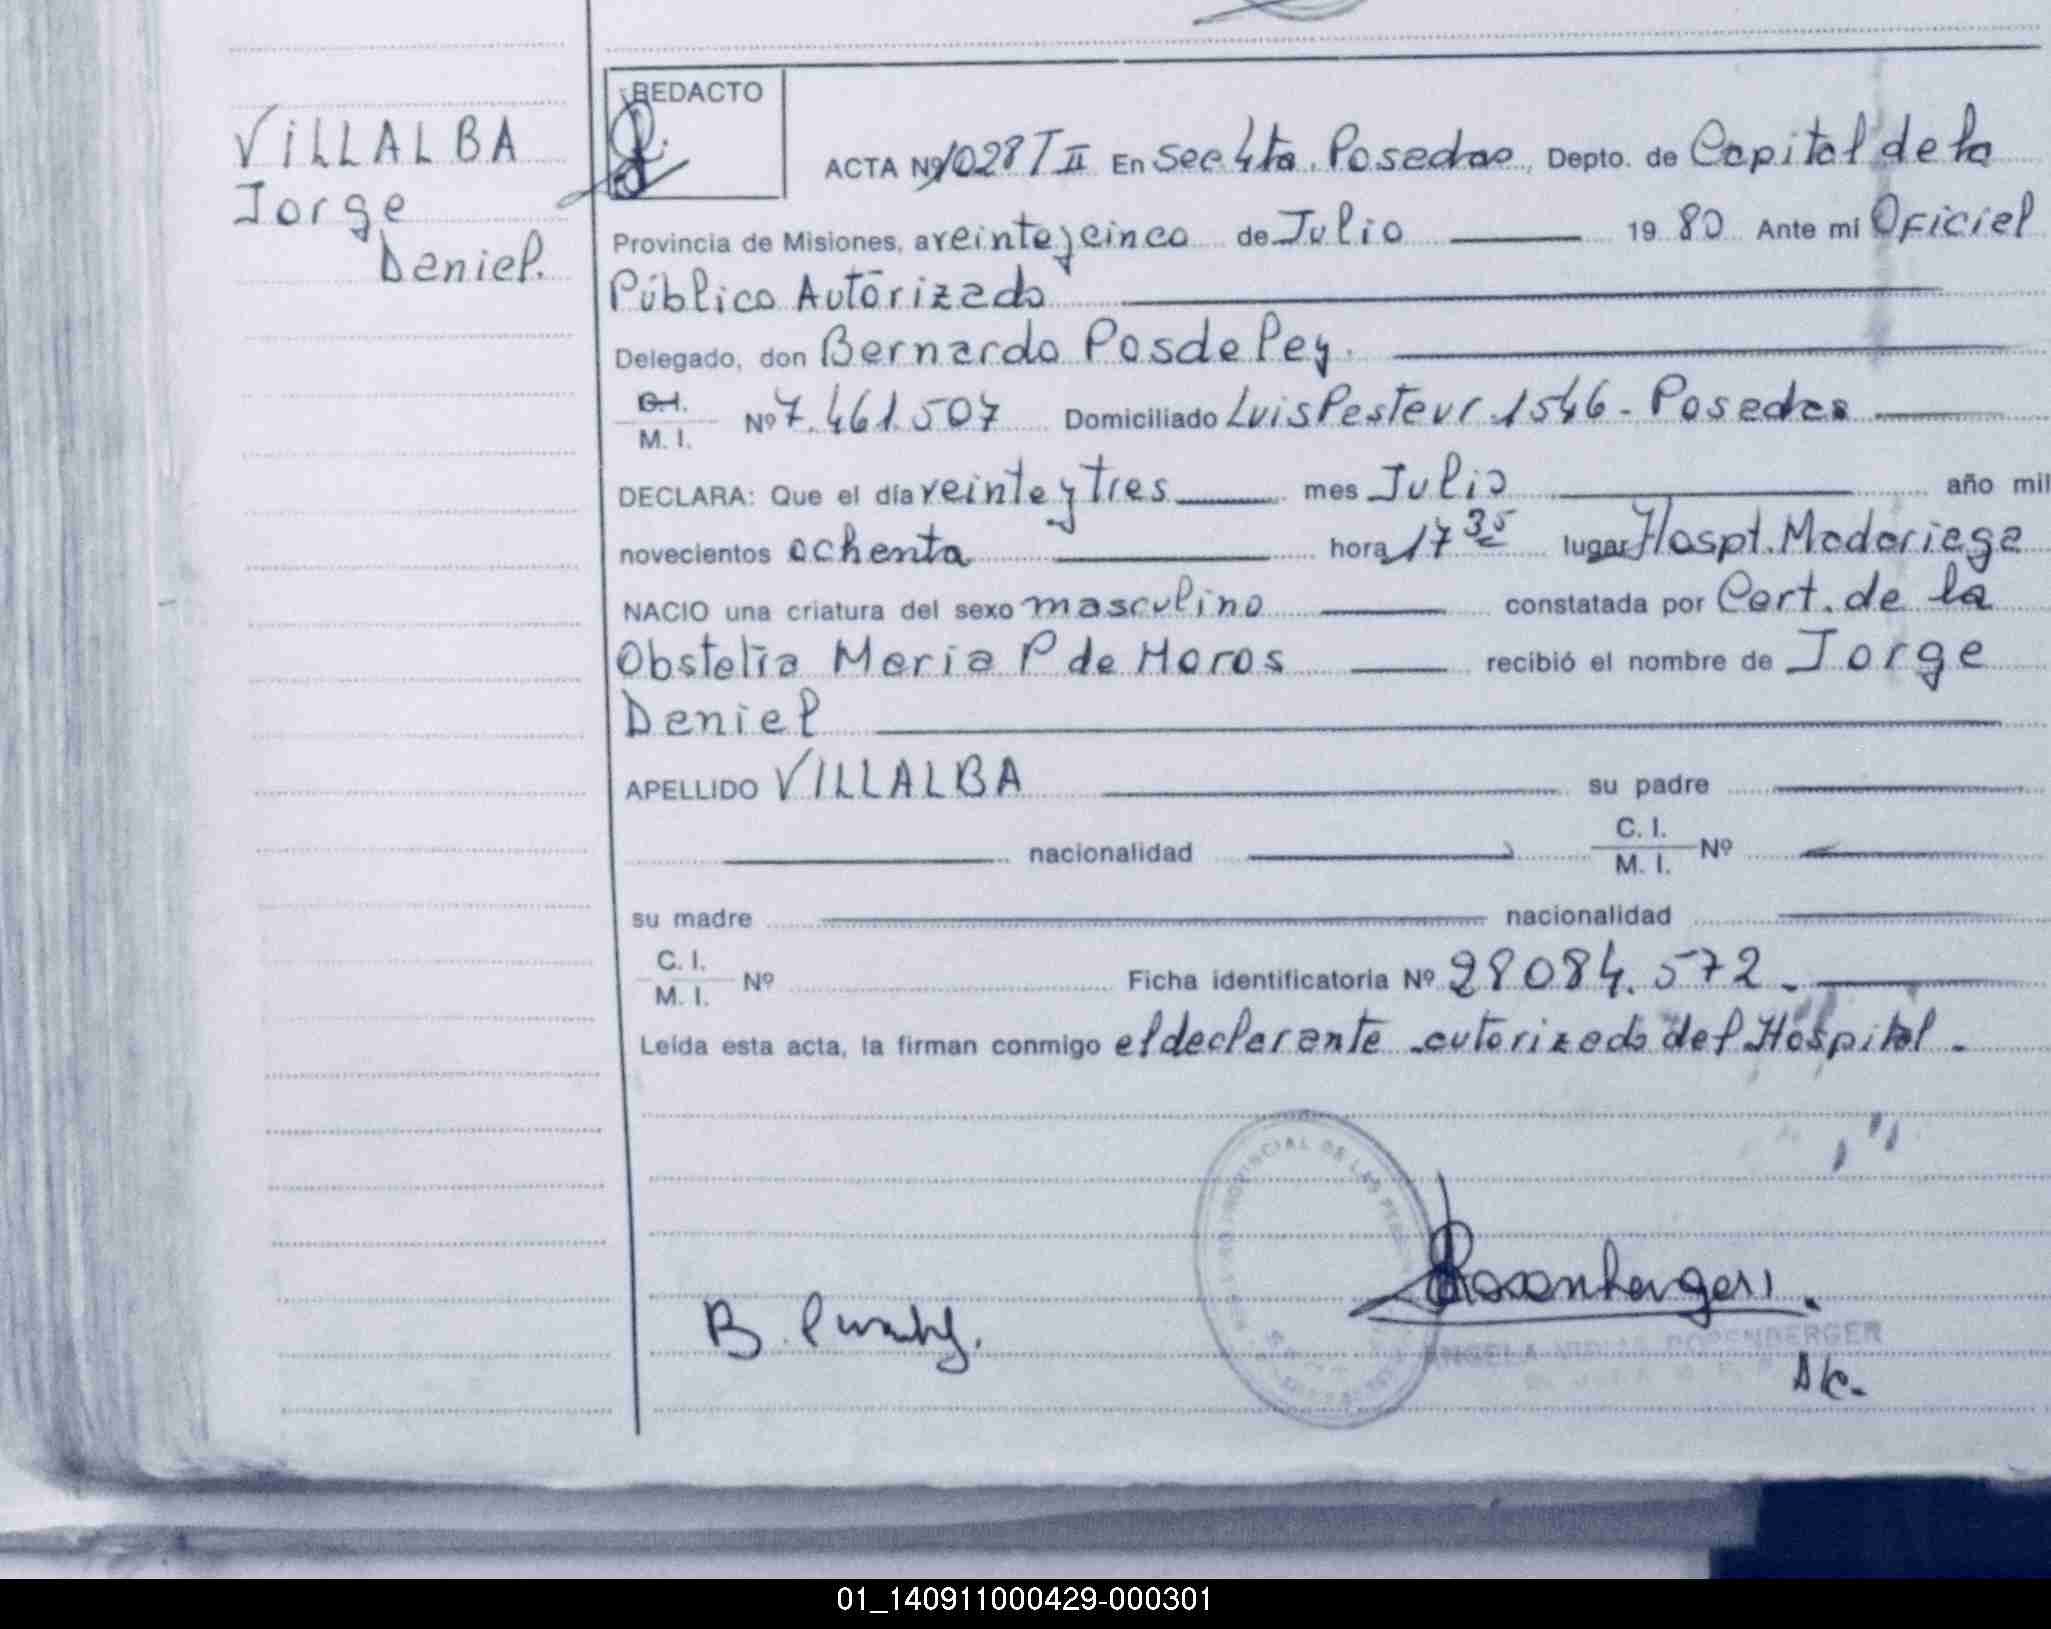 VILLALBA
Jorge
Daniel.
REDACTO
ACTA Nº 1028 T II En Sec 4ta. Posadas, Depto. de Capital de la
Provincia de Misiones, a veinte y cinco de Julio 19 80 Ante mi Oficial
Público Autorizado
Delegado, don Bernardo Posdeley.
C.I.
M. I. Nº 7.461.507 Domiciliado Luis Pasteur 1546 - Posadas
DECLARA: Que el día veinte y tres mes Julio año mil
novecientos ochenta hora 17 35 lugar Hospt. Madariaga
NACIO una criatura del sexo masculino constatada por Cert. de la
Obstetra Maria P de Moros recibió el nombre de Jorge
Daniel
APELLIDO VILLALBA su padre
nacionalidad C. I.
M. I. Nº
su madre nacionalidad
C. I.
M. I. Nº Ficha identificatoria Nº 28084.572.-
Leída esta acta, la firman conmigo el declarante autorizado del Hospital.-
PROVINCIAL DE LAS PERS
B.
Rosenberger
ANGELA ROSENBERGER
01_140911000429-000301